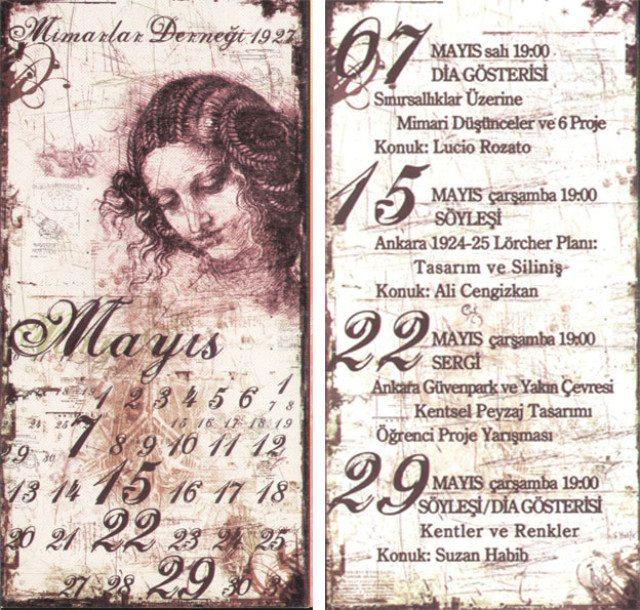 Mimarlar Derneği 1927
Mayıs
1 2 3 4 5 6
7 8 9 10 11 12
13 14 15 16 17 18
20 21 22 23 24 25
27 28 29 30
07 MAYIS salı 19:00
DİA GÖSTERİSİ
Sınırsallıklar Üzerine
Mimari Düşünceler ve 6 Proje
Konuk: Lucio Rozato
15 MAYIS çarşamba 19:00
SÖYLEŞİ
Ankara 1924-25 Lörcher Planı:
Tasarım ve Siliniş
Konuk: Ali Cengizkan
22 MAYIS çarşamba 19:00
SERGİ
Ankara Güvenpark ve Yakın Çevresi
Kentsel Peyzaj Tasarımı
Öğrenci Proje Yarışması
29 MAYIS çarşamba 19:00
SÖYLEŞİ/DİA GÖSTERİSİ
Kentler ve Renkler
Konuk: Suzan Habib